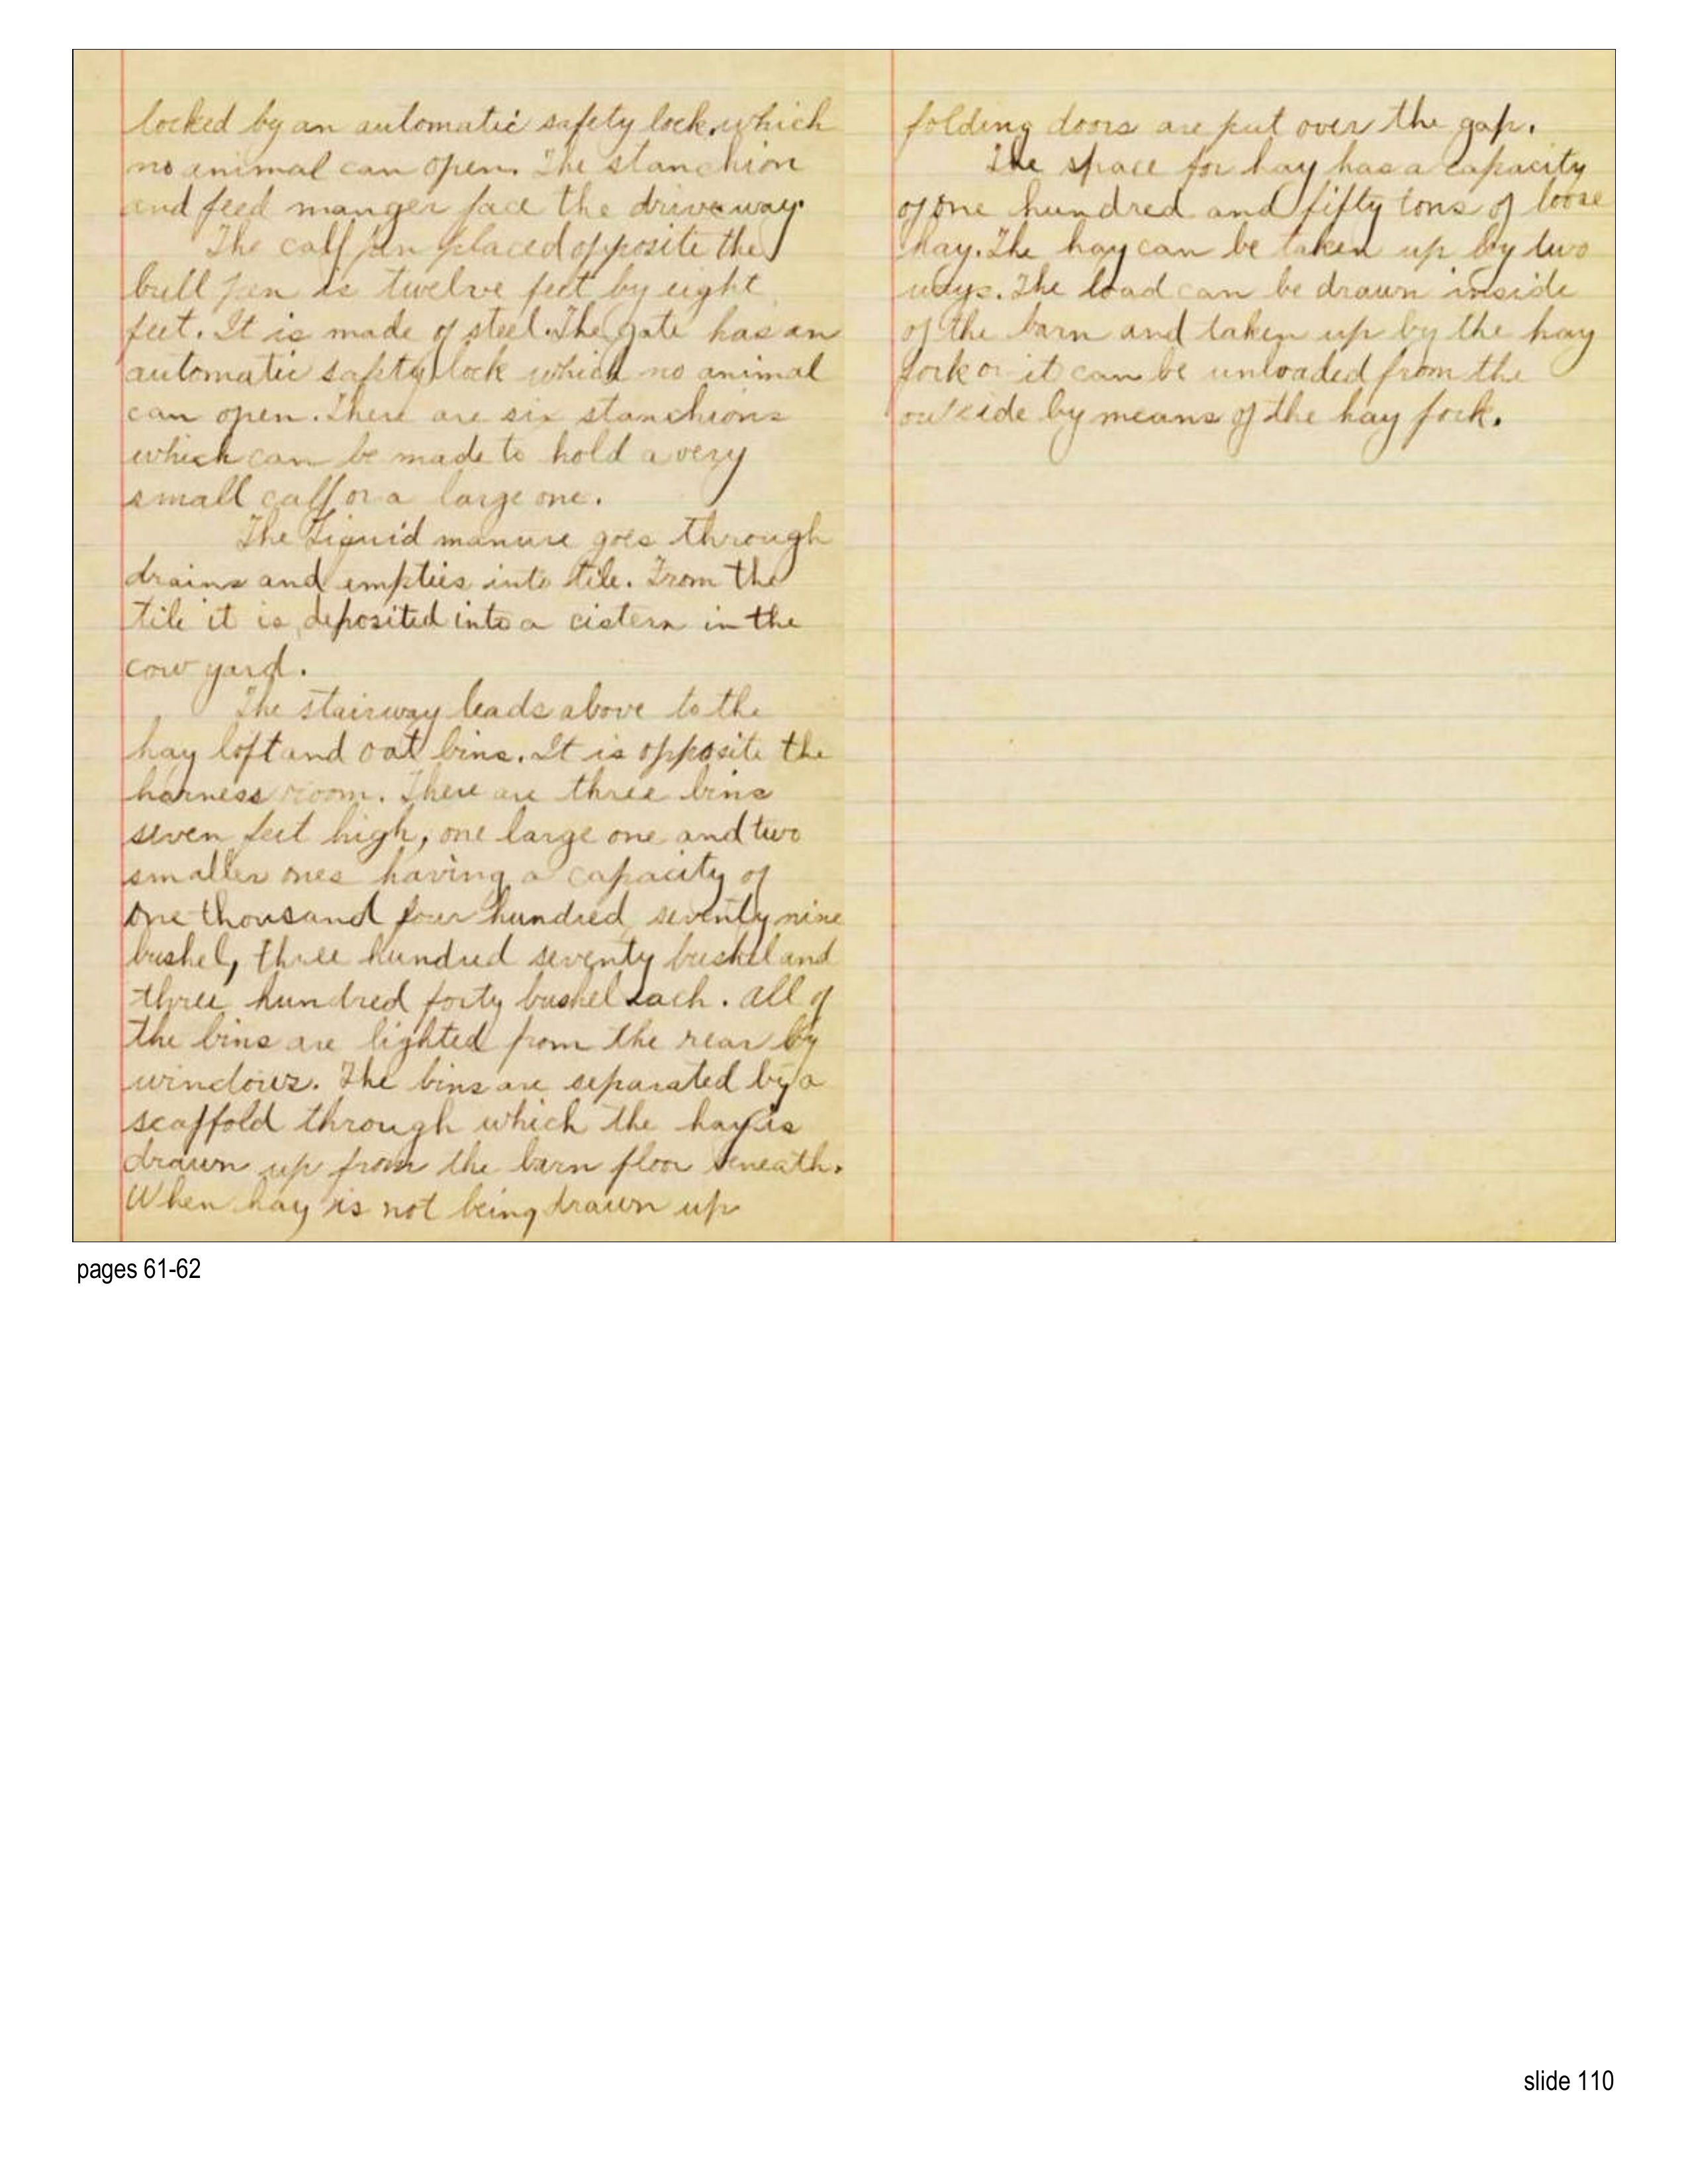 locked by an automatic safety lock, which
no animal can open. The stanchion
and feed manger face the driveway.
The calf pen placed opposite the
bull pen is twelve feet by eight
feet. It is made of steel. The gate has an
automatic safety lock which no animal
can open. There are six stanchions
which can be made to hold a very
small calf or a large one.
The Liquid manure goes through
drains and empties into tile. From the
tile it is deposited into a cistern in the
cow yard.
The stairway leads above to the
hay loft and oat bins. It is opposite the
harness room. There are three bins
seven feet high, one large one and two
smaller ones having a capacity of
one thousand four hundred seventy nine
bushel, three hundred seventy bushel and
three hundred forty bushel each. All of
the bins are lighted from the rear by
windows. The bins are separated by a
scaffold through which the hay is
drawn up from the barn floor beneath.
When hay is not being drawn up
folding doors are put over the gap.
The space for hay has a capacity
of one hundred and fifty tons of loose
hay. The hay can be taken up by two
ways. The load can be drawn inside
of the barn and taken up by the hay
fork or it can be unloaded from the
outside by means of the hay fork.
pages 61-62
slide 110